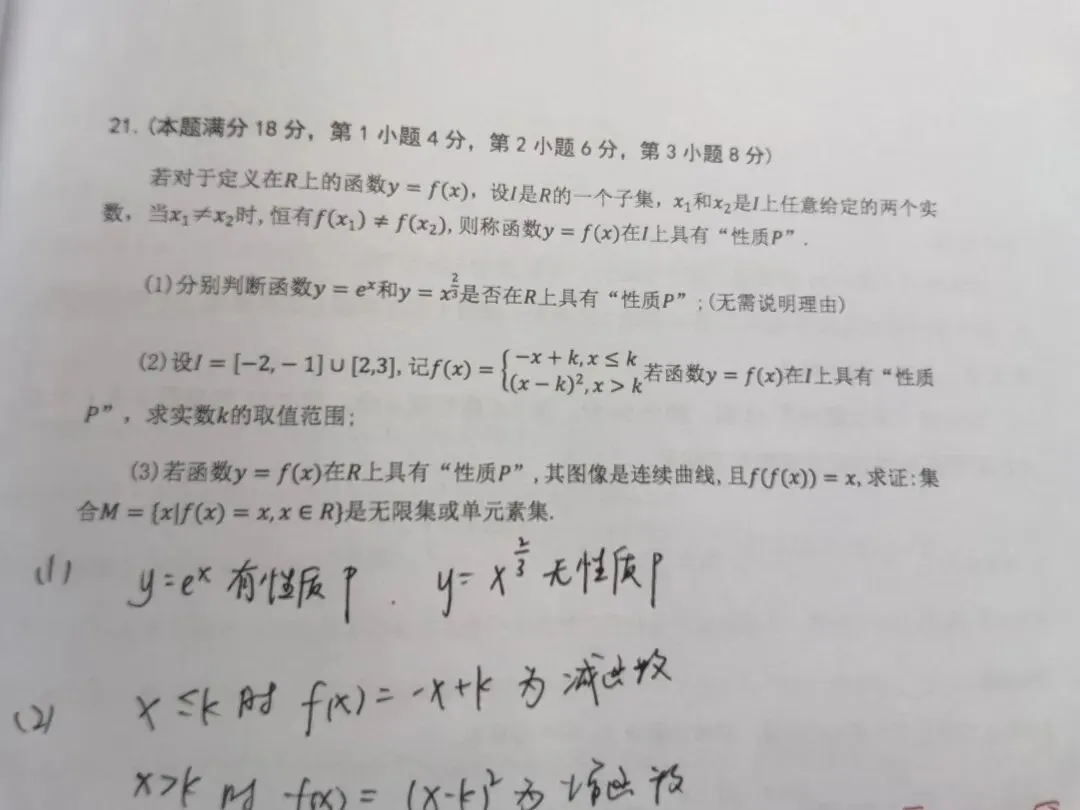 21. (本题满分 18 分，第 1 小题 4 分，第 2 小题 6 分，第 3 小题 8 分)
若对于定义在R上的函数y = f(x)，设I是R的一个子集，x₁和x₂是I上任意给定的两个实
数，当x₁≠x₂时, 恒有f(x₁) ≠ f(x₂), 则称函数y = f(x)在I上具有“性质P”.
(1)分别判断函数y = eˣ和y = x^{2/3}是否在R上具有“性质P”; (无需说明理由)
(2)设I = [−2, − 1] ∪ [2,3], 记f(x) = {−x + k, x ≤ k; (x − k)², x > k 若函数y = f(x)在I上具有“性质
P”，求实数k的取值范围;
(3)若函数y = f(x)在R上具有“性质P”, 其图像是连续曲线, 且f(f(x)) = x, 求证:集
合M = {x|f(x) = x, x ∈ R}是无限集或单元素集.
(1) y=eˣ 有性质P. y= x^{2/3} 无性质P
(2) x≤k 时 f(x)= -x+k 为减函数
x>k 时 f(x)= (x-k)² 为增函数